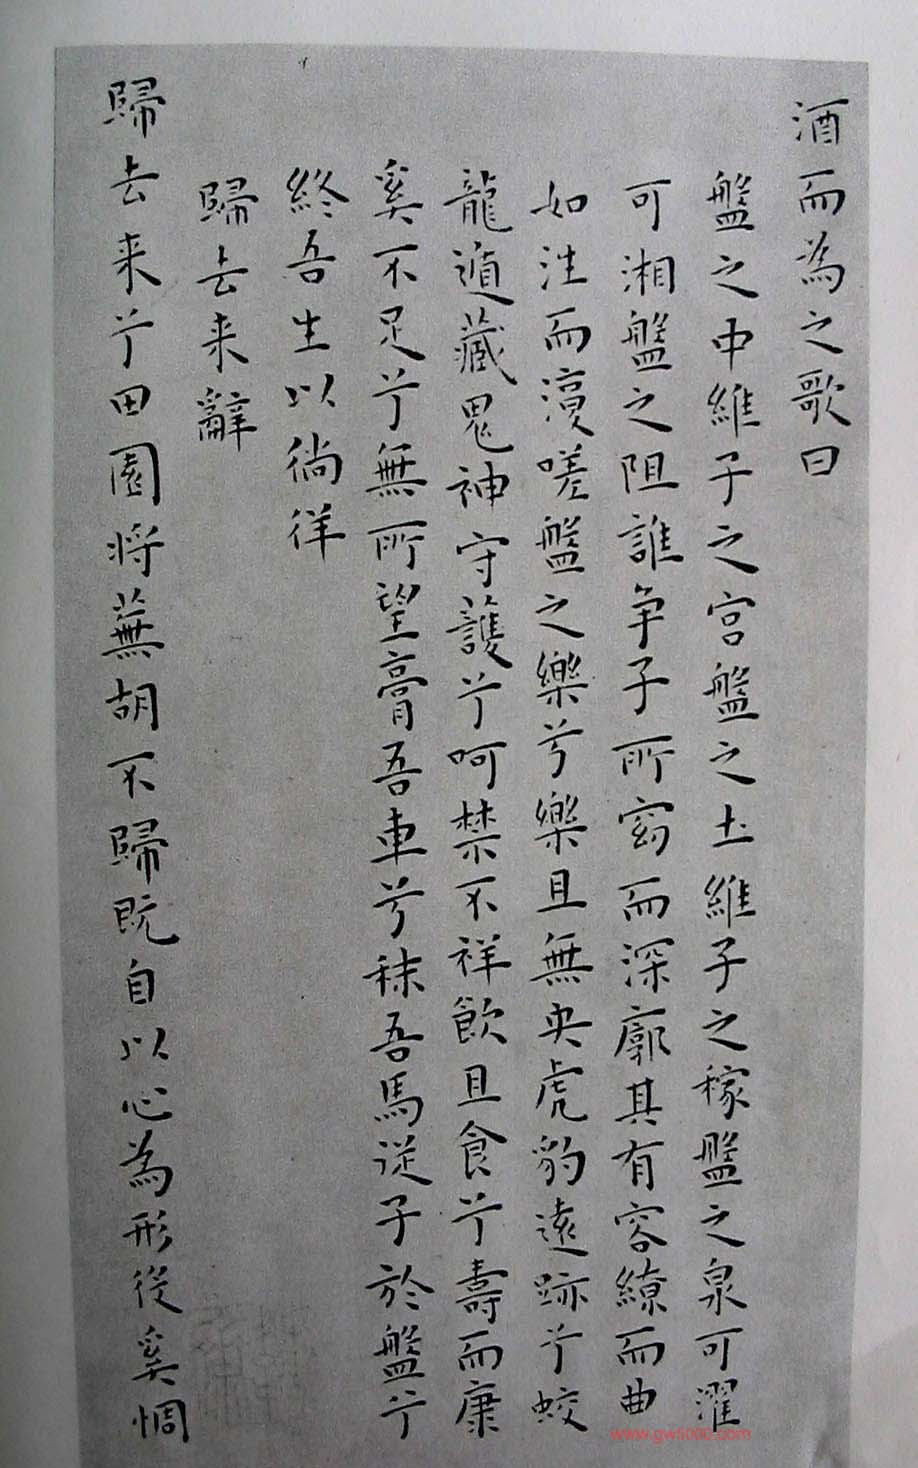 酒而為之歌曰
盤之中維子之宮盤之土維子之稼盤之泉可濯
可湘盤之阻誰争子所窈而深廓其有容繚而曲
如往而復嗟盤之樂兮樂且無央虎豹遠跡兮蛟
龍遁藏鬼神守護兮呵禁不祥飲且食兮壽而康
奚不足兮無所望膏吾車兮秣吾馬從子於盤兮
終吾生以徜徉
歸去来辭
歸去来兮田園将蕪胡不歸既自以心為形役奚惆
www.gw5000.com